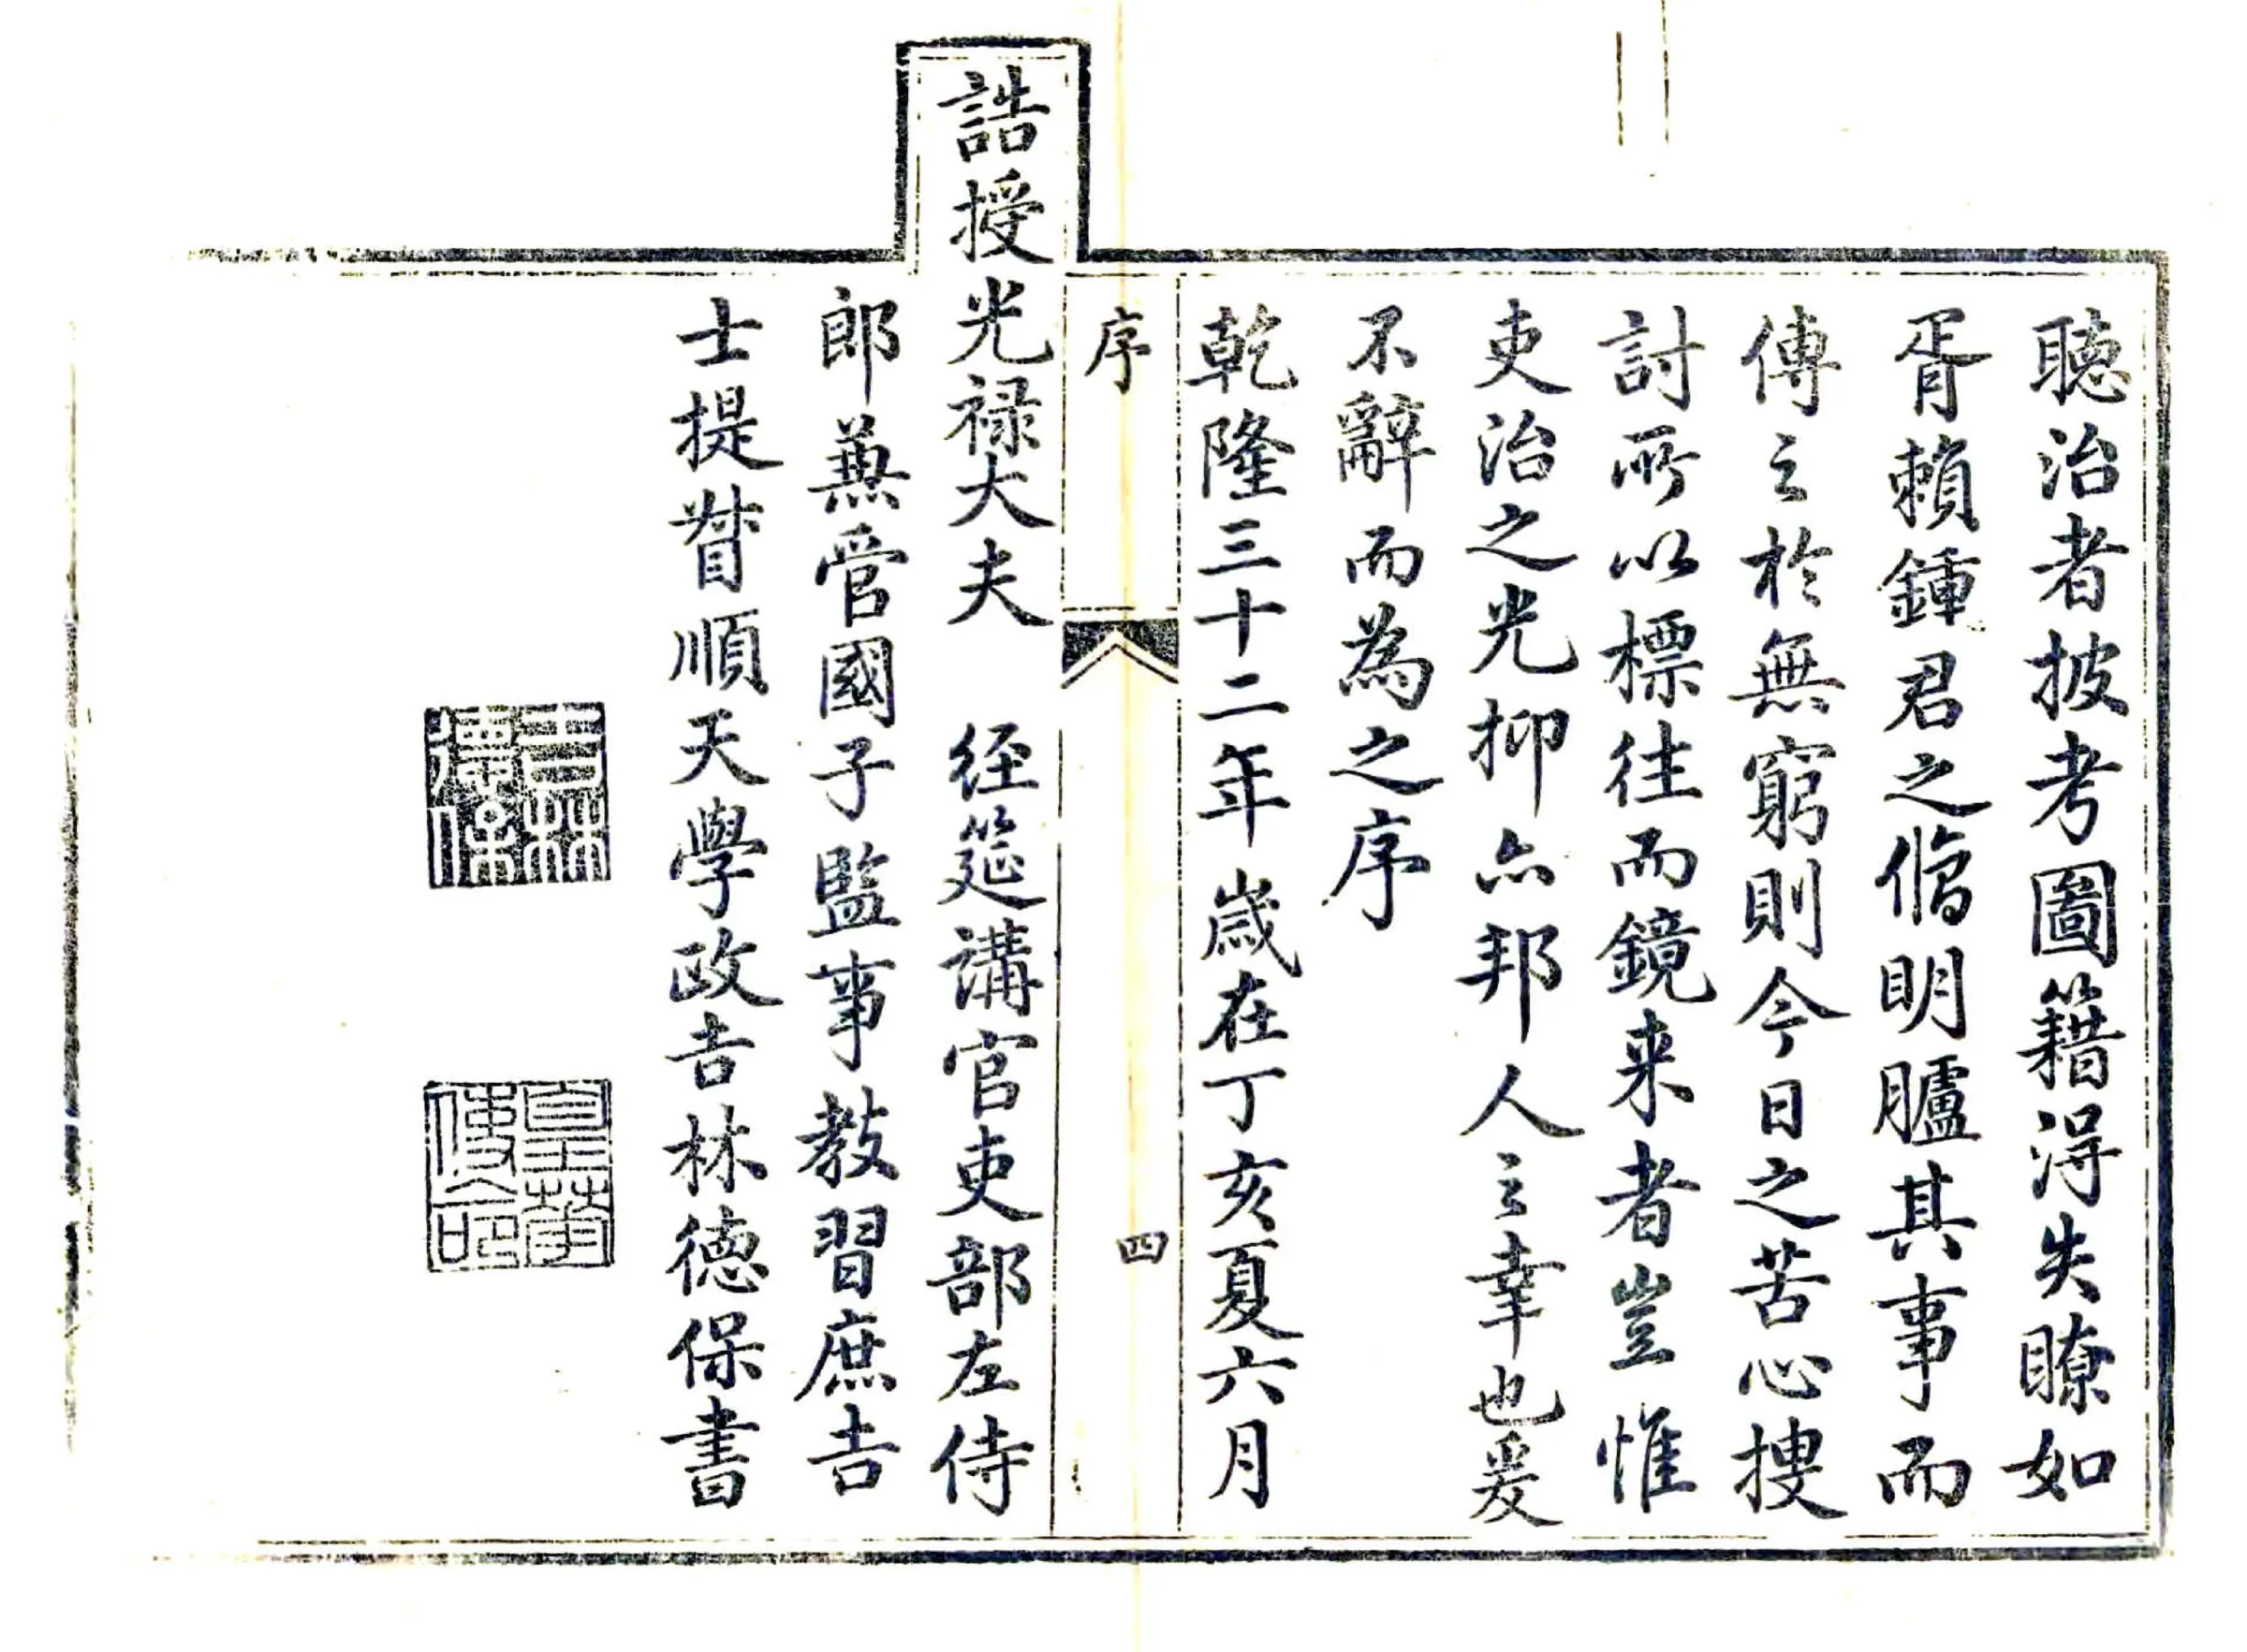 聽治者披考圖籍淂失瞭如
胥賴鍾君之脩明臚其事而
傳之於無窮則今日之苦心搜
討所以標往而鏡来者豈惟
吏治之光抑亦邦人之幸也爰
不辭而為之序
乾隆三十二年歲在丁亥夏六月
序
四
誥授光禄大夫 経筵講官吏部左侍
郎兼管國子監事教習庶吉
士提督順天學政吉林德保書
吉林德保
皇華使命